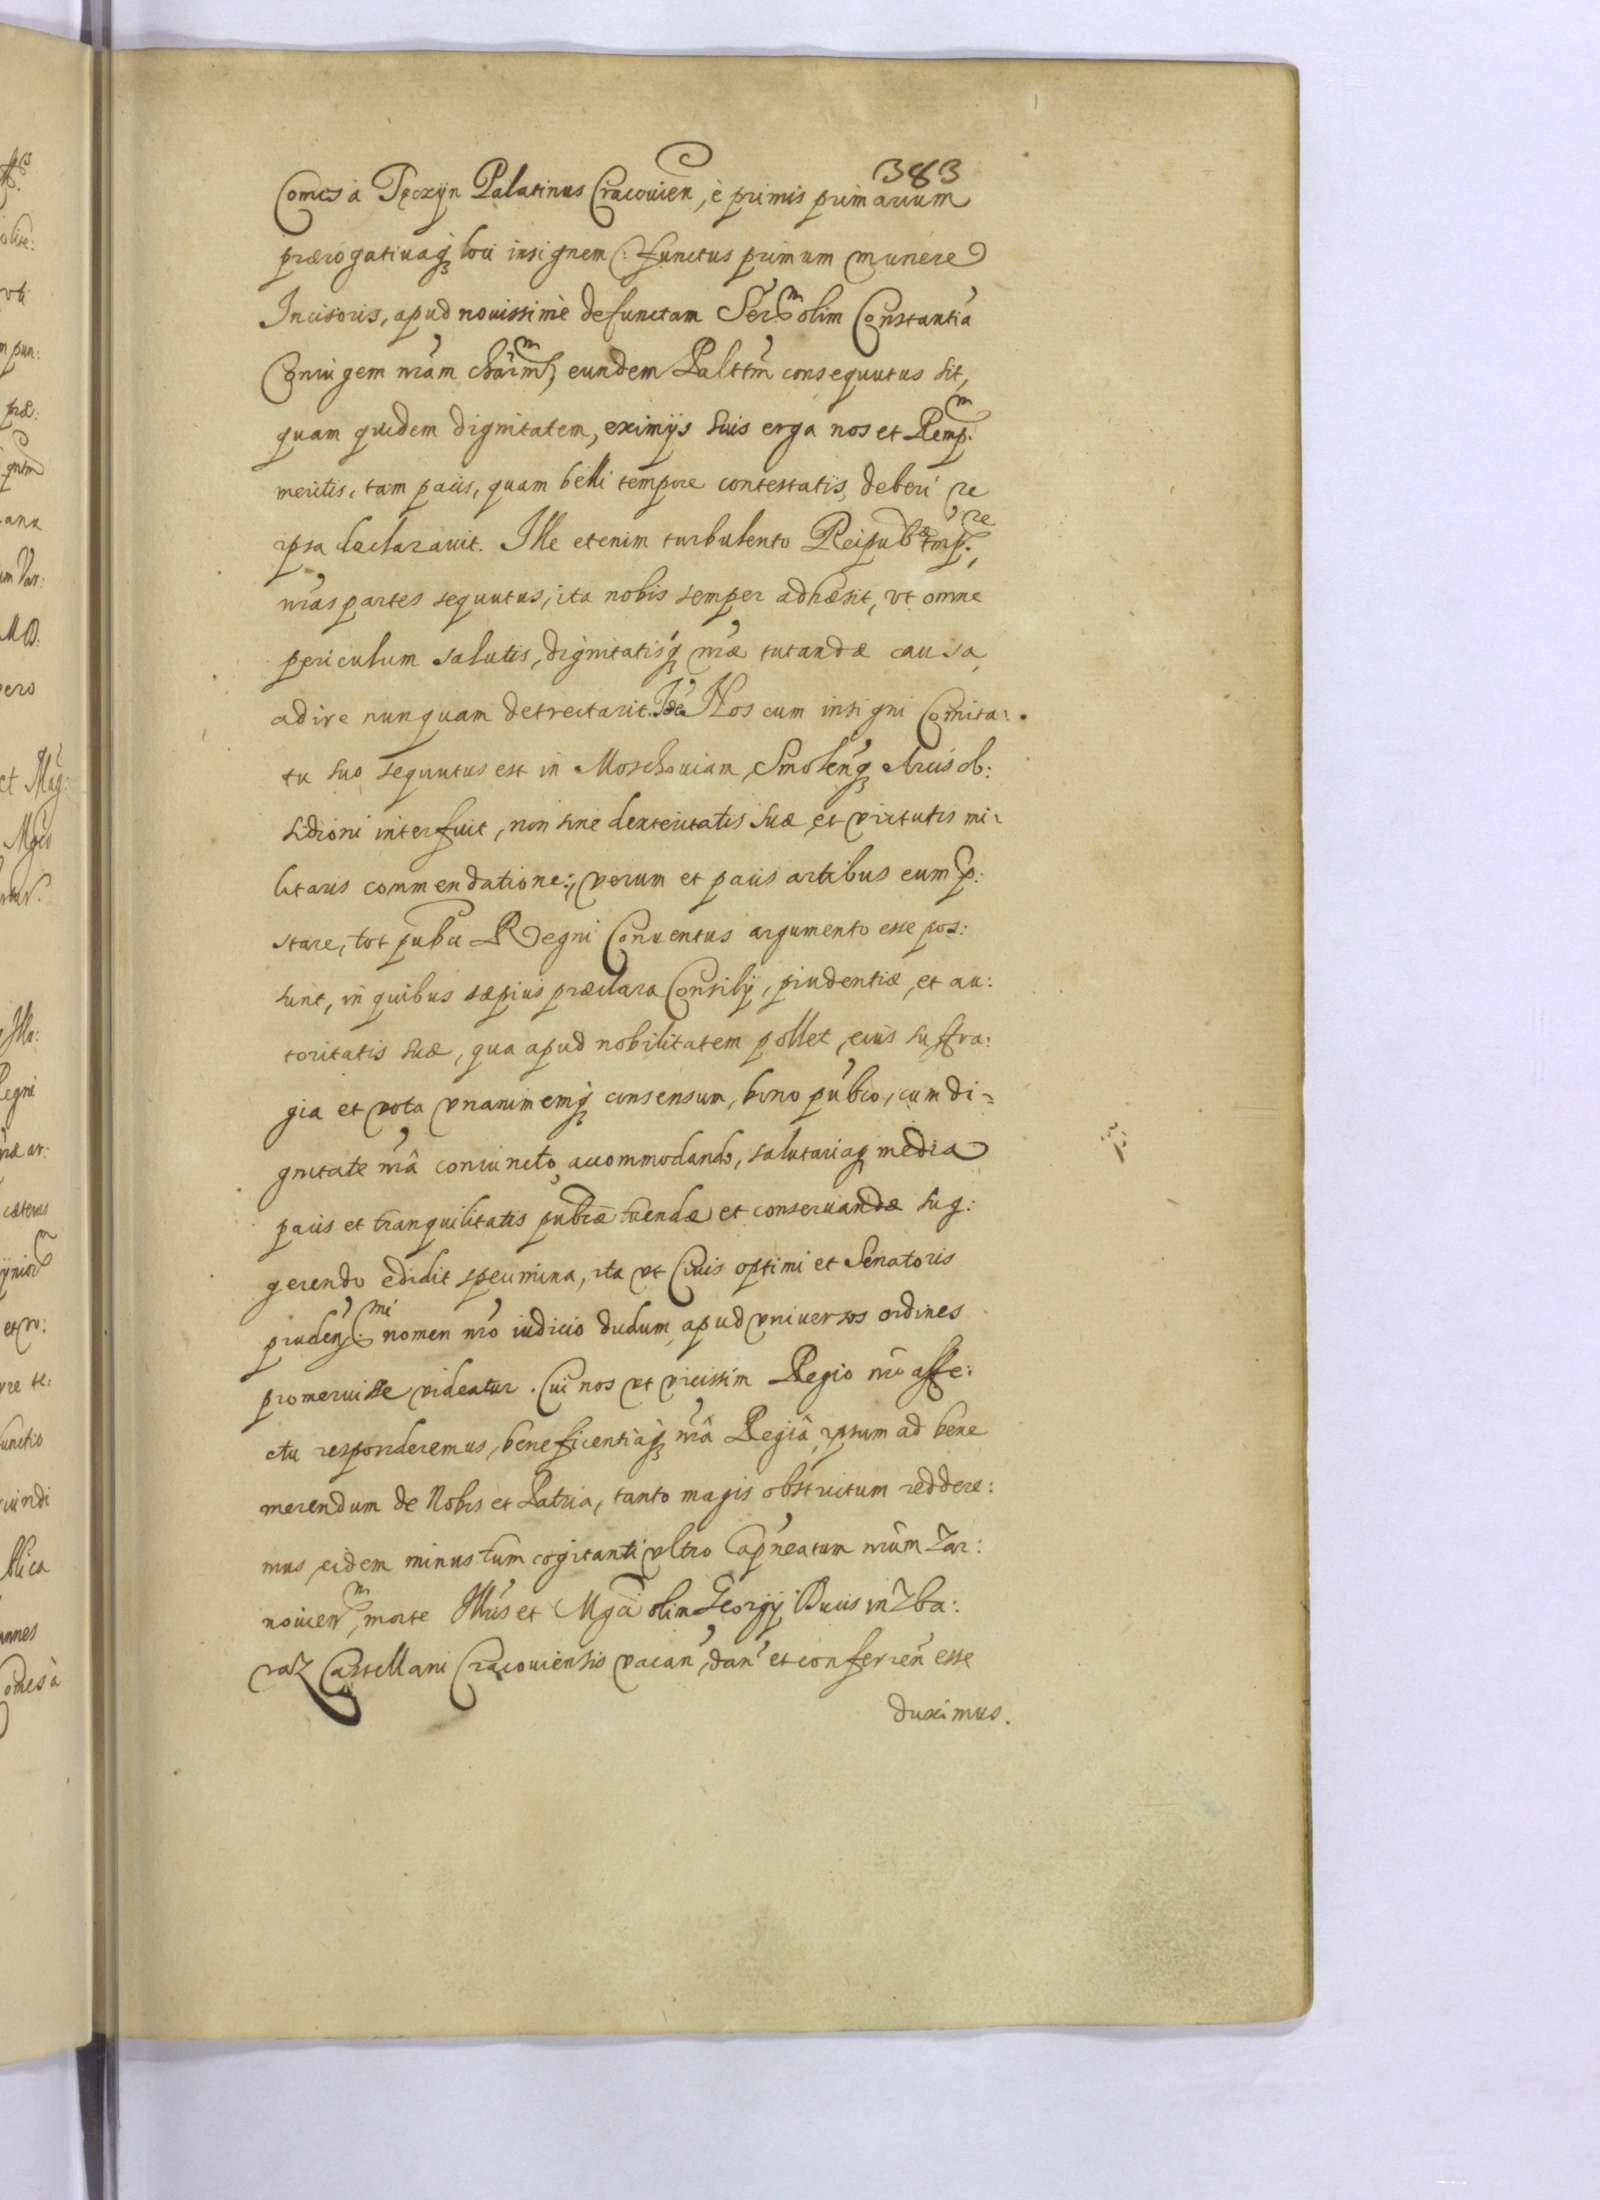 383
Comes à Tęczyn Palatinus Cracouien, è primis primarium
prærogatiuaq; loci insignem: functus primum munere
Incisoris, apud nouissimè defunctam Ser:m olim Constantiã
Coniugem nr̃am chãrm:m, eundem Paltt̃m consequutus sit,
quam quidem dignitatem, eximijs suis erga nos et Remp:m
meritis, tam pacis, quam belli tempore contestatis, deberi re
ipsa declarauit. Ille etenim turbulento Reipub:æ tmp:re,
nr̃as partes sequutus, ita nobis semper adhæsit, vt omne
periculum salutis, dignitatisq; nr̃æ tutandæ causa,
adire nunquam detrectarit. Idẽ Nos cum insigni Comita:
tu suo sequutus est in Moschouiam, Smolenq; Arcis ob:
sidioni interfuit, non sine dexteritatis suæ et virtutis mi:
litaris commendatione:, verum et pacis artibus eum p̃:
stare, tot pubci Regni Conuentus argumento esse pos:
sunt, in quibus sæpius præclara Consilij, prudentiæ, et au:
toritatis suæ, qua apud nobilitatem pollet, eius suffra:
gia et vota vnanimemq; consensum, bono pubco, cum di:
gnitate nr̃â coniuncto, accommodando, salutariaq; media
pacis et tranquilitatis pubcæ tuendæ et conseruandæ sug:
gerendo edidit specimina, ita vt Ciuis optimi et Senatoris
pruden:mi nomen nr̃o iudicio dudum, apud vniuersos ordines
promeruisse videatur. Cui nos vt vicissim Regio nr̃o affe:
ctu responderemus, beneficentiaq; nr̃â Regiâ, ipsum ad bene
merendum de Nobis et Patria, tanto magis obstrictum reddere:
mus, eidem minus tum cogitanti vltro Capneatum nr̃um Zar:
nouien:m, morte Illris et Mgci olim Georgij Ducis in Zba:
raz Castellani Cracouiensis vacan̄, dan̄ et conferen̄ esse
duximus.